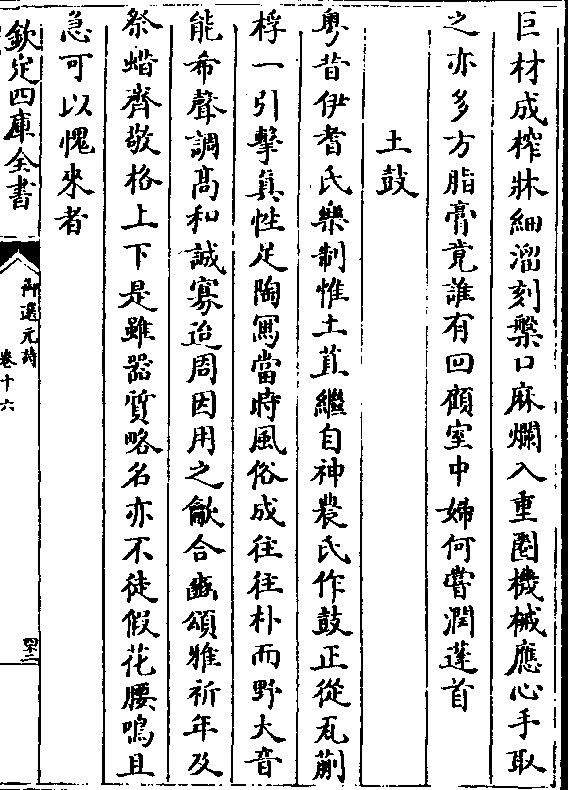 巨材成榨牀細溜刻槃口麻爛入重圏機械應心手取
之亦多方脂膏竟誰有回顧室中婦何嘗潤蓬首
土鼓
粤昔伊耆氏樂制惟土苴繼自神農氏作鼓正從瓦蒯
桴一引擊真性足陶寫當時風俗成往往朴而野大音
能希聲調髙和誠寡迨周因用之龡合豳頌雅祈年及
祭蜡齊敬格上下是雖器質略名亦不徒假花腰鳴且
急可以愧来者
欽定四庫全書
御選元詩
卷十六